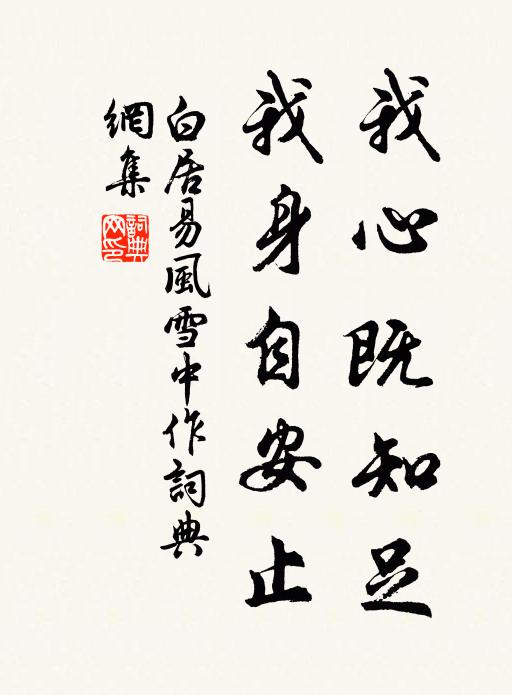 我心既知足
我身自安止
白居易風雪中作詞典
網集
詞典網印